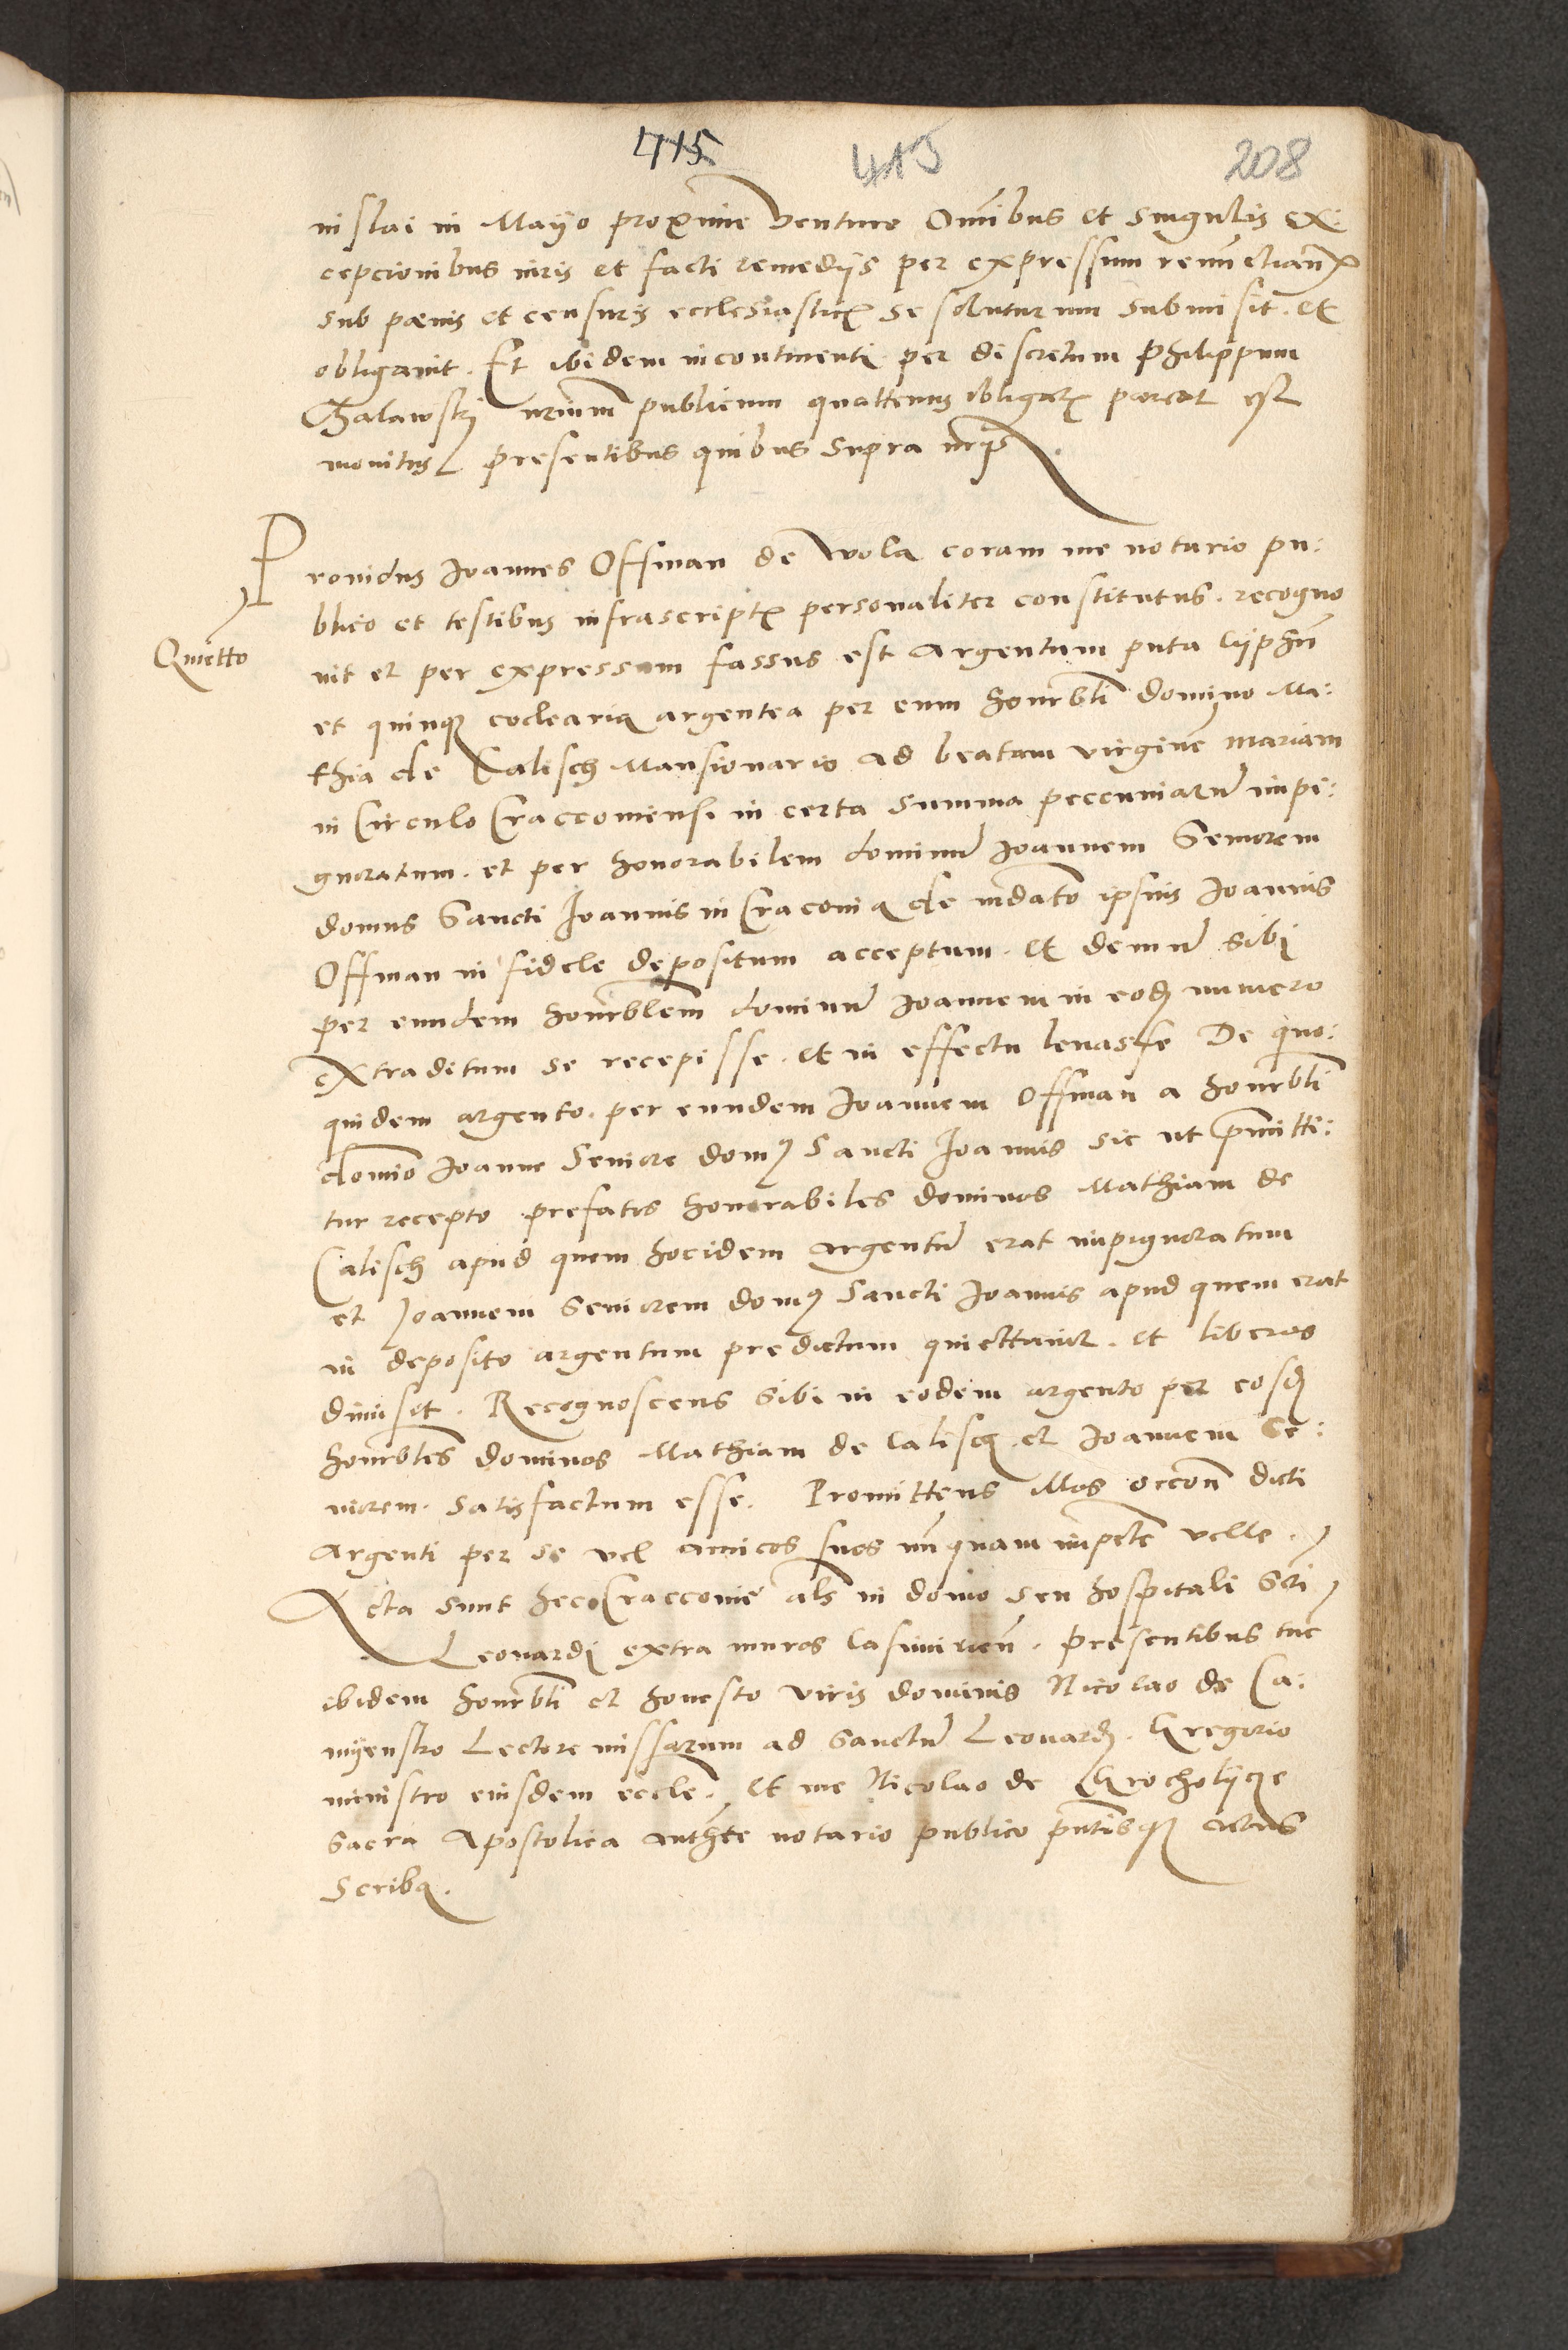 415
415
208
nislai in Mayo proxime venturo Omnibus et singulis ex:
cepcionibus iuris et facti remedijs per expressum renunctian
sub pœnis et censuris ecclesiastic se soluturum submisit. et
obligauit. Et ibidem incontinenti per discretum Philippum
nrium publicum quattenus obligat pareat est
monitus presentibus quibus supra
Quietto
Prouidus Joannes Offman de Wola coram me notario pu:
blico et testibus infrascript personaliter constitutus. recogno
uit et per expressum fassus est Argentum puta cyphu
et quinque coclearia argentea per eum honrbli domino Ma:
thia de Calisch Mansionario ad beatam virgine mariam
in Circulo Craccouiensi in certa summa peccuniaru impi:
gnoratum. et per honorabilem dominu Joannem Seniorem
domus Sancti Joannis in Craconia de mdato ipsius Joannis
Offman in fidele depositum acceptum. et demu sibi
per eundem honrblem dominu Joannem in eod numero
extraditum se recepisse. et in effectu leuasse De quo:
quidem argento. per eundem Joannem Offman a honrbli
domio Joanne Seniore domus Sancti Joannis sic ut pmitti:
tur recepto prefatos honorabiles dominos Mathiam de
Calisch apud quem hocidem argentu erat impignoratum
et Joannem Seniorem domus Sancti Joannis apud quem erat
in deposito argentum predictum quiettauit. et liberos
dimisit. Recognoscens sibi in eodem argento per eosd
honrbles dominos Mathiam de Calisch et Joannem Se:
niorem. satisfactum esse. Promittens illos occone dicti
Argenti per se vel amicos suos nunquam impete velle.
Acta sunt hec Cracconie als in domo seu hospitali Scti
Leonardi extra muros Casimirien. presentibus tuc
ibidem honrbli et honesto viris dominis Nicolao de Ca:
myenstro Lectore missarum ad Sanctu Leonard. Gregorio
ministro eiusdem eccle. et me Nicolao de Grocholycze
Sacra Apostolica authte notario publico pntisque actus
Scriba.